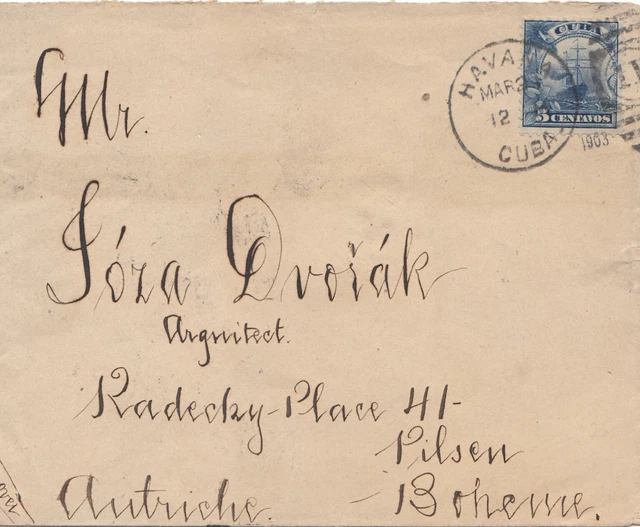 CUBA
5 CENTAVOS
HAVANA
MAR
12
CUBA
1903
Mr.
Józa Dvořák
Argnitect.
Radecky-Place 41-
Pilsen
Autriche. - Boheme.
over